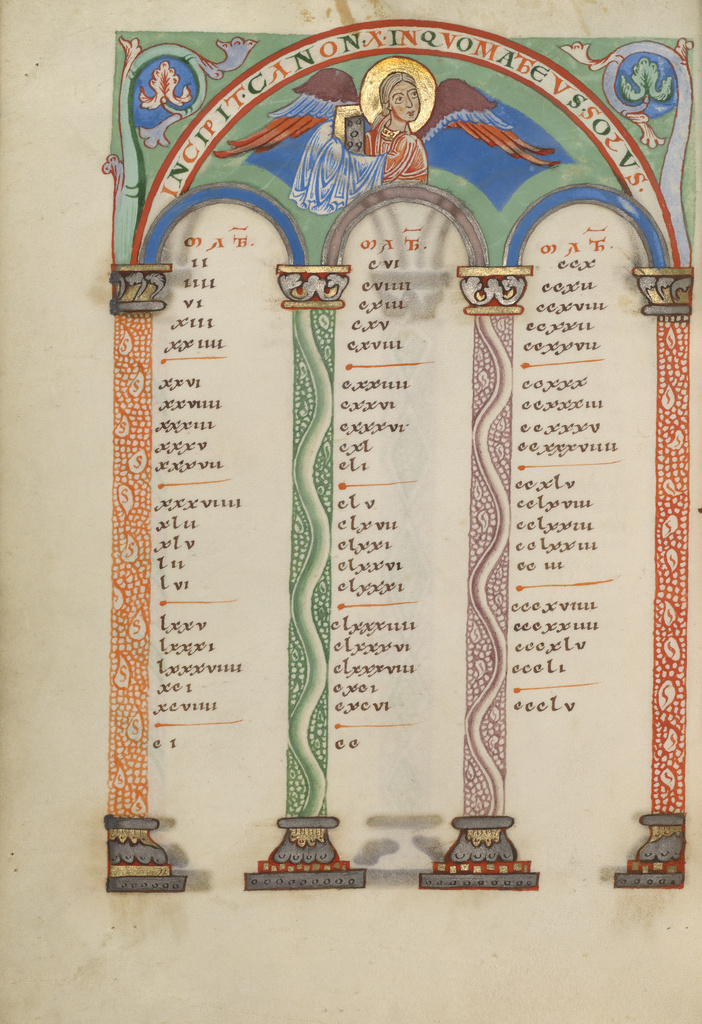 INCIPIT·CANON·X·INQVOMATEVS·SOLVS·
MAT̄.
ii
iiii
vi
xiii
xxiiii
xxvi
xxviiii
xxxiii
xxxv
xxxvii
xxxviiii
xlii
xlv
lii
lvi
lxxv
lxxxi
lxxxviiii
xci
xcviiii
ci
MAT̄.
cvi
cviiii
cxiii
cxv
cxviii
cxxiiii
cxxvi
cxxxvi
cxl
cli
clv
clxvii
clxxi
clxxvi
clxxxi
clxxxiiii
clxxxvi
clxxxviii
cxci
cxcvi
cc
MAT̄.
ccx
ccxii
ccxviii
ccxxii
ccxxvii
ccxxx
ccxxxiii
ccxxxv
ccxxxviiii
ccxlv
cclxviii
cclxxiii
cclxxiii
cc iii
cccxviiii
cccxxiiii
cccxlv
cccli
ccclv